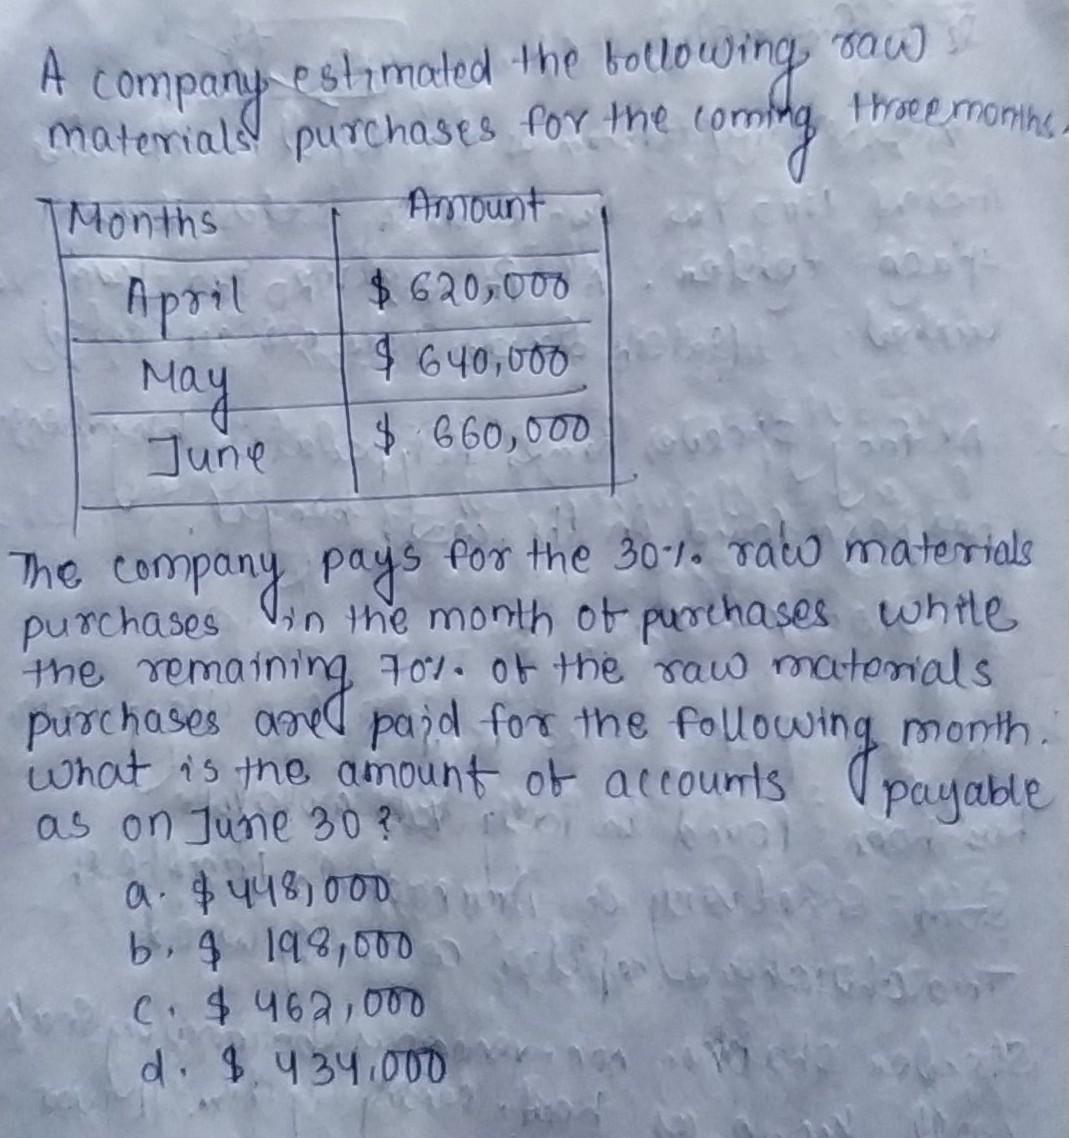 A company estimated the following raw
materials purchases for the coming three months.
Months Amount
April $ 620,000
May $ 640,000
June $ 660,000
The company pays for the 30% raw materials
purchases in the month of purchases while
the remaining 70% of the raw materials
purchases are paid for the following month.
What is the amount of accounts payable
as on June 30?
a. $ 448,000
b. $ 198,000
c. $ 462,000
d. $ 434,000